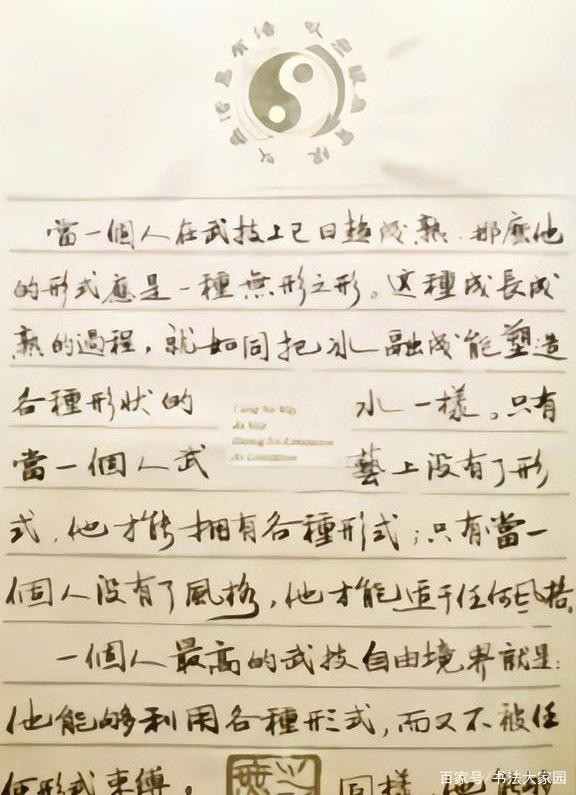 當一個人在武技上已日趨成熟.那麼他
的形式應是一種無形之形。這種成長成
熟的過程,就如同把冰融成能塑造
各種形狀的 水一樣。只有
Using No Way
As Way
Having No Limitation
As Limitation
當一個人武 藝上没有了形
式,他才能擁有各種形式;只有當一
個人没有了風格,他才能适于任何风格。
一個人最高的武技自由境界就是:
他能夠利用各種形式,而又不被任
何形式束縛。 同樣,他能
百家号/书法大家园